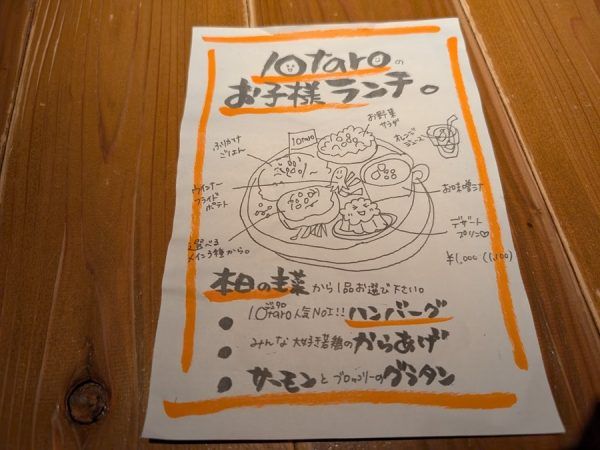 10taroの
お子様ランチ。
10taro
お野菜
サラダ
オレンジ
ジュース
ふりかけ
ごはん
ウインナー
フライド
ポテト
お味噌汁
選べる
メイン3種から。
デザート
プリン♡
¥1,000 (1,100)
本日の主菜から1品お選び下さい。
● 10taro人気NO1!!ハンバーグ
● みんな大好き若鶏のからあげ
● サーモンとブロッコリーのグラタン